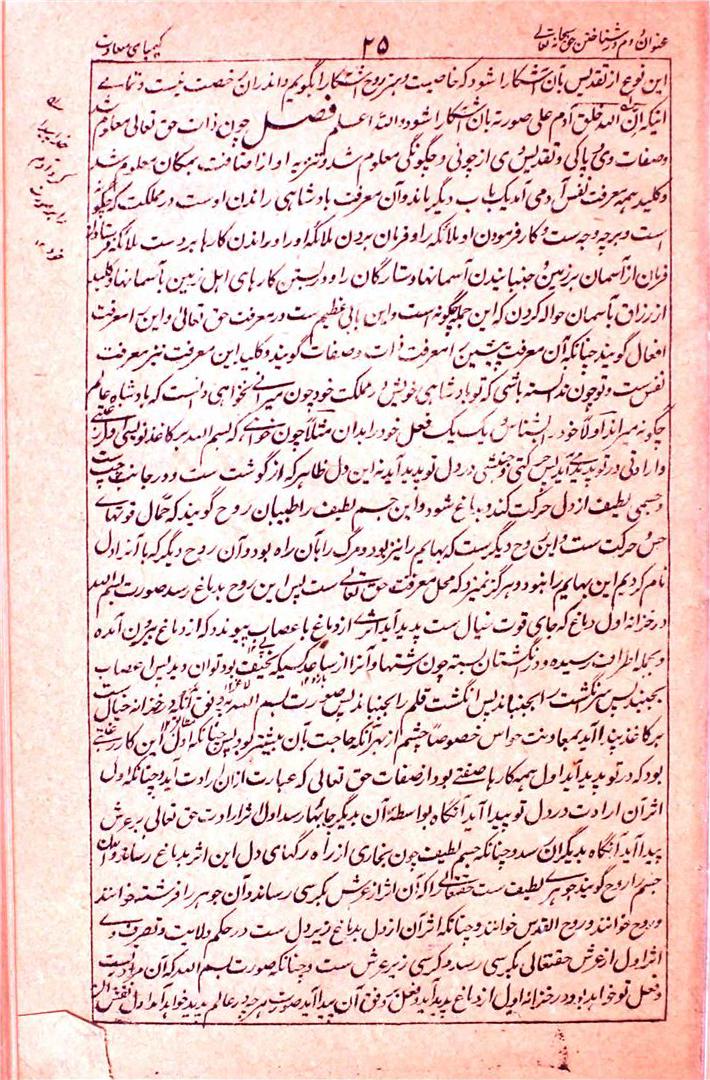 عنوان دوم در شناختن حق سبحانه تعالی
۲۵
کیمیای سعادت
این نوع از تقدیس بآن آشکارا شود که خاصیت و سر روح آشکارا بگویم و اندران رخصت نیست و تمامے
آنکه ان الله خلق آدم علی صورته بآن آشکارا شود والله اعلم فصل چون ذات حق تعالی معلوم شد
و صفات وی و پاکی و تقدیس وی از چونی و چگونگی معلوم شد و تنزیه او از اضافت بمکان معلوم شد
و کلید همه معرفت نفس آدمی آمد یک باب دیگر بماند و آن معرفت پادشاهی راندن اوست در مملکت که چگونه
است و بر چه وجه ست و کار فرمودن او ملائکه را و فرمان بردن ملائکه او را و راندن کارها بر دست ملائکه و فرستادن
فرمان از آسمان بر زمین و جنبانیدن آسمانها و ستارگان را و در بستن کارهای اهل زمین بآسمانها و کلید
ارزاق بآسمان حواله کردن که این جمله چگونه است و این بابی عظیم ست در معرفت حق تعالی و این را معرفت
افعال گویند چنانکه آن معرفت پیشین را معرفت ذات و صفات گویند و کلید این معرفت نیز معرفت
نفس ست و تو چون ندانسته باشی که تو پادشاهی خویش در مملکت خود چون میرانی نخواهی دانست که پادشاه عالم
چگونه میراند اولا خود را بشناس و یک یک فعل خود را بدان مثلا چون خواهی که بسم الله بر کاغذ نویسی اول رغبتی
و ارادتی در تو پدید آید پس حرکتی و جنبشی در دل تو پدید آید نه این دل ظاهر که از گوشت ست و در جانب چپ ست
و جسمی لطیف از دل حرکت کند و بدماغ شود و این جسم لطیف را طبیبان روح گویند که حمال قوتهای
حس و حرکت ست و این روح دیگر ست که بهایم را نیز بود و مرگ را بآن راه بود و آن روح دیگر که ما آنرا دل
نام کردیم این بهایم را نبود و هرگز نمیرد که محل معرفت حق تعالی ست پس این روح بدماغ رسد صورت بسم الله
در خزانه اول دماغ که جای قوت خیال ست پدید آید اثری از دماغ با عصاب پیوندد که از دماغ بیرون آمده
و بجمله اطراف رسیده و در انگشتان بسته چون رشتها و آنرا از ساعد کسیکه نحیف بود توان دید پس اعصاب
بجنبد پس سر انگشت را بجنباند پس انگشت قلم را بجنباند پس صورت بسم الله بر وفق آنکه در خزانه خیال ست
بر کاغذ پیدا آید بمعاونت حواس خصوصا چشم از بهر آنکه حاجت بآن بیشتر بود پس چنانکه اول این کار رغبتی
بود که در تو پدید آید اول همه کارها صفتی بود از صفات حق تعالی که عبارت ازان ارادت آید و چنانکه اول
اثر آن ارادت در دل تو پیدا آید آنگاه بواسطهٔ آن بدیگر جایها رسد اول اثر ارادت حق تعالی بر عرش
پیدا آید آنگاه بدیگران رسد و چنانکه جسم لطیف چون بخاری از راه رگهای دل این اثر بدماغ رساند و این
جسم را روح گویند جوهری لطیف ست حق تعالی را که آن اثر از عرش بکرسی رساند و آن جوهر را فرشته خوانند
و روح خوانند و روح القدس خوانند و چنانکه اثر آن از دل بدماغ زیر دل ست در حکم ولایت و تصرف وی
اثر اول از عرش حق تعالی بکرسی رسد و کرسی زیر عرش ست و چنانکه صورت بسم الله که آن مراد تست
و فعل تو خواهد بود در خزانه اول از دماغ پدید آید و فعل بر وفق آن پیدا آید صورت هر چه در عالم پدید خواهد آمد اول نقش آن